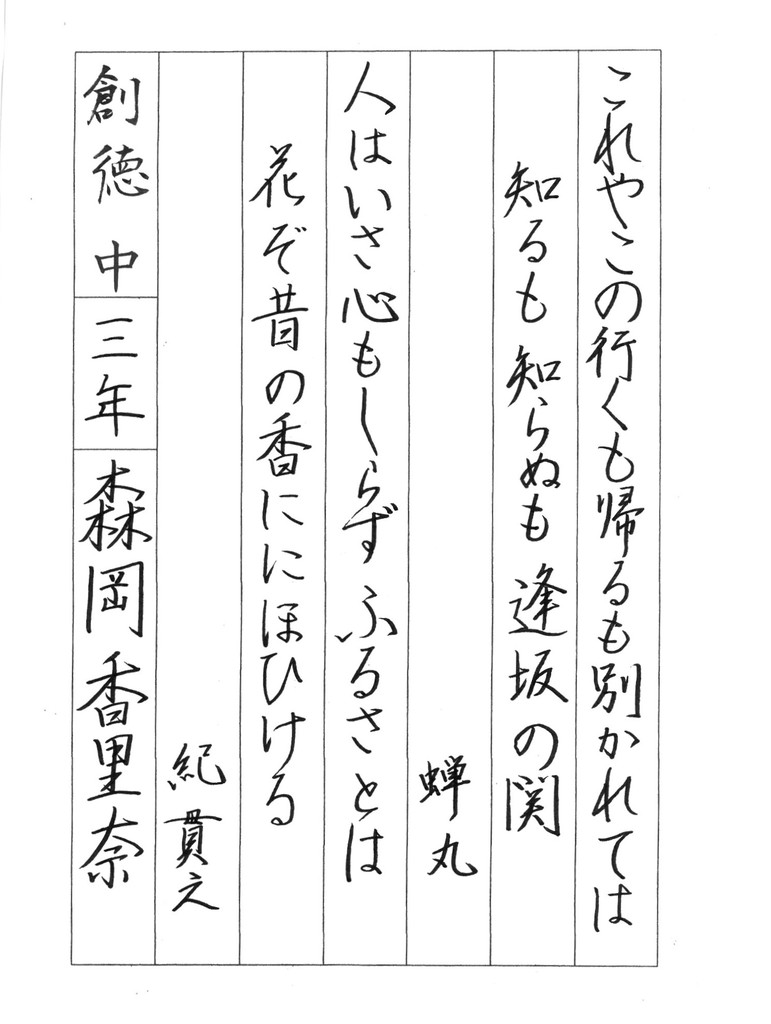 これやこの行くも帰るも別かれては
知るも知らぬも逢坂の関
蝉丸
人はいさ心もしらずふるさとは
花ぞ昔の香ににほひける
紀貫之
創徳中 三年 森岡香里奈